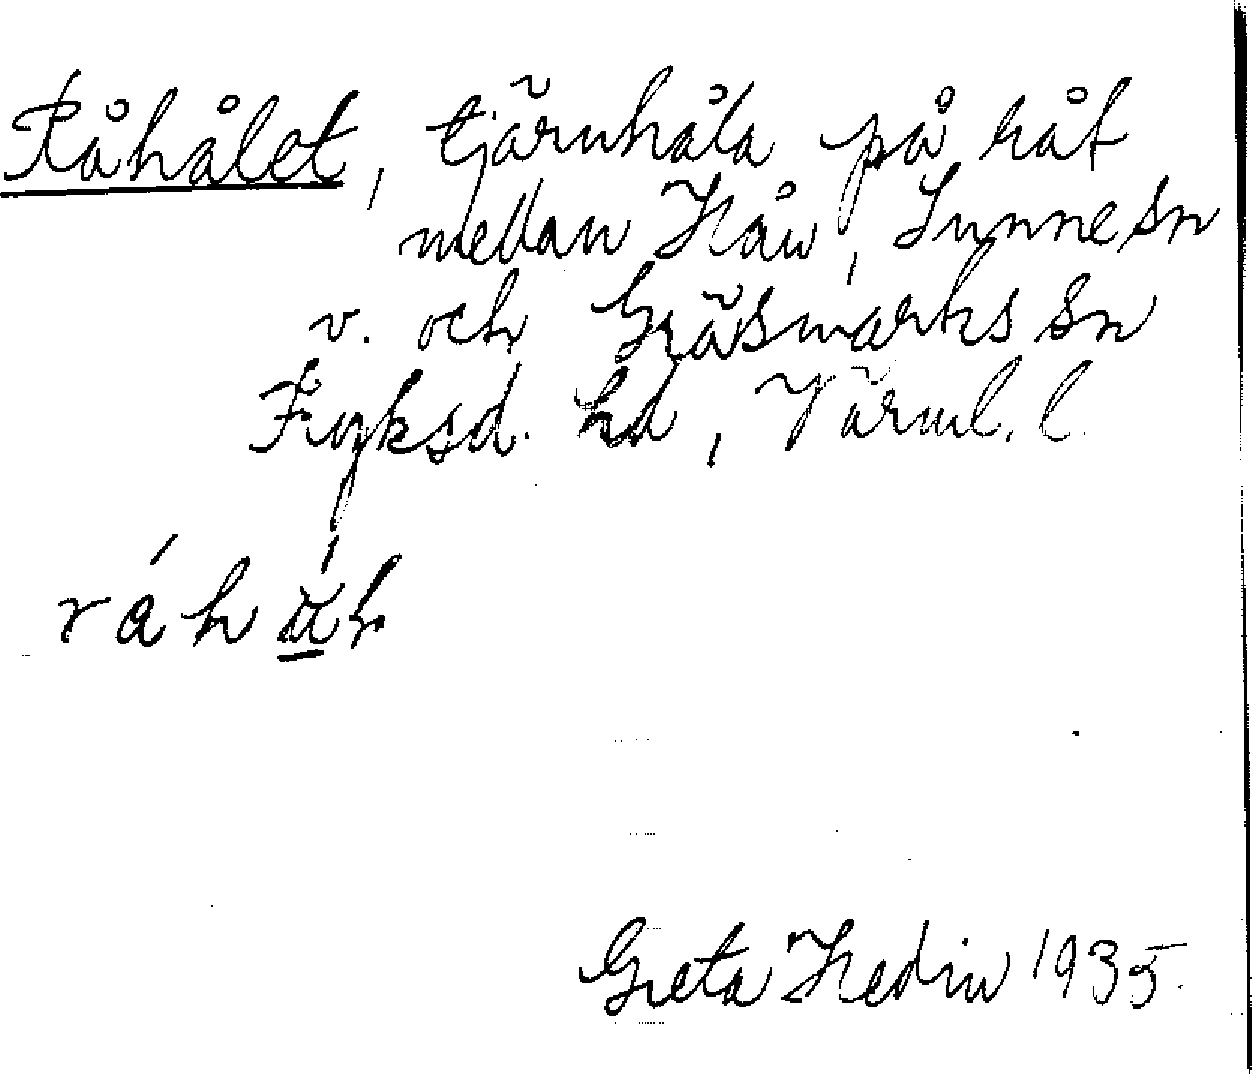 Råhålet, tjärnhåla på råt
mellan Hån, Sunne sn
v. och Gräsmarks sn
Fryksd. hd, Värml. l.
Greta Hedin 1935.